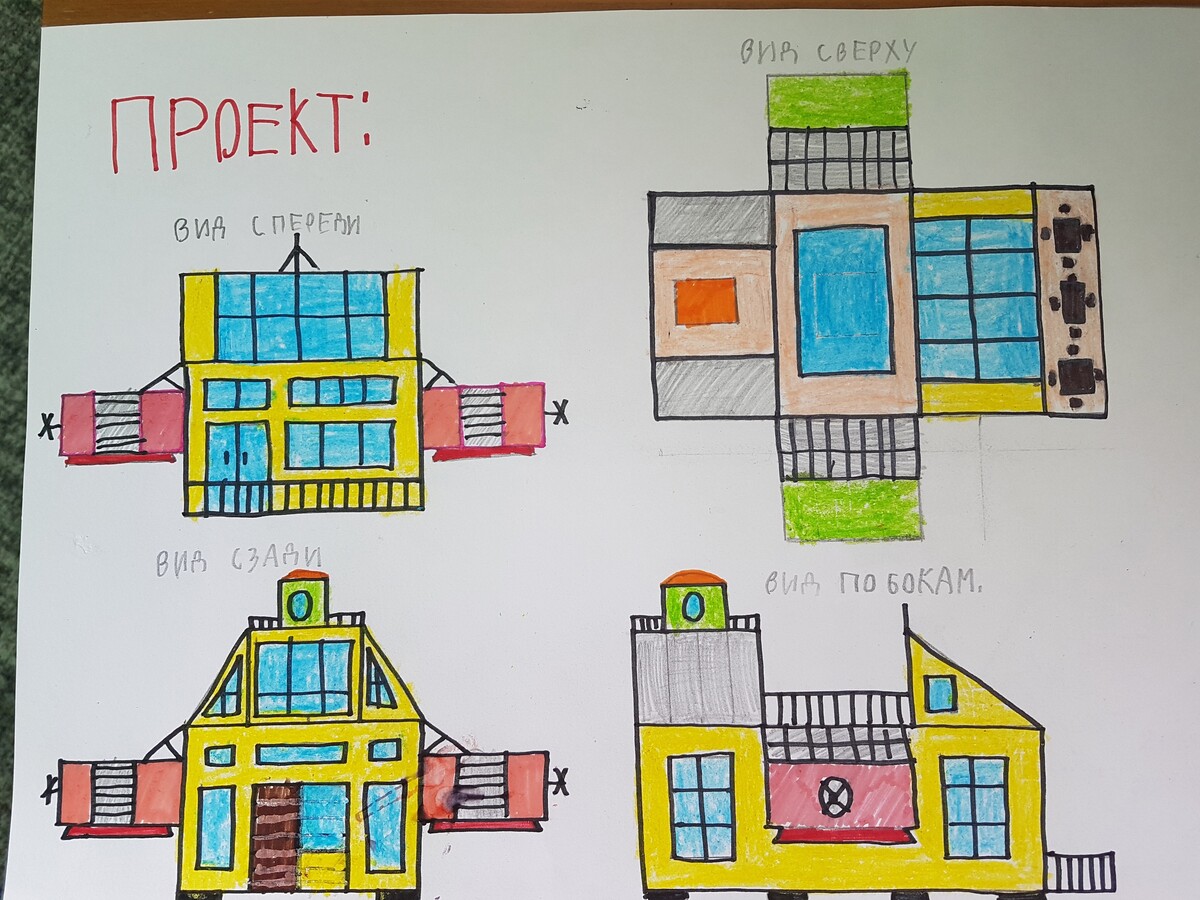 ПРОЕКТ:
ВИД СПЕРЕДИ
ВИД СВЕРХУ
ВИД СЗАДИ
ВИД ПО БОКАМ.